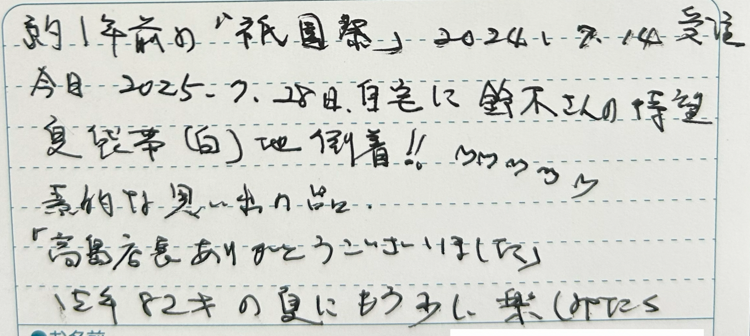 約1年前の「祇園祭」2024.7.14受注
今日 2025.7.28日、自宅に鈴木さんの待望
夏袋帯(白)地到着!!
素的な思い出の品.
「高島店長ありがとうございました」
82才の夏にもう少し楽しみたら
お名前